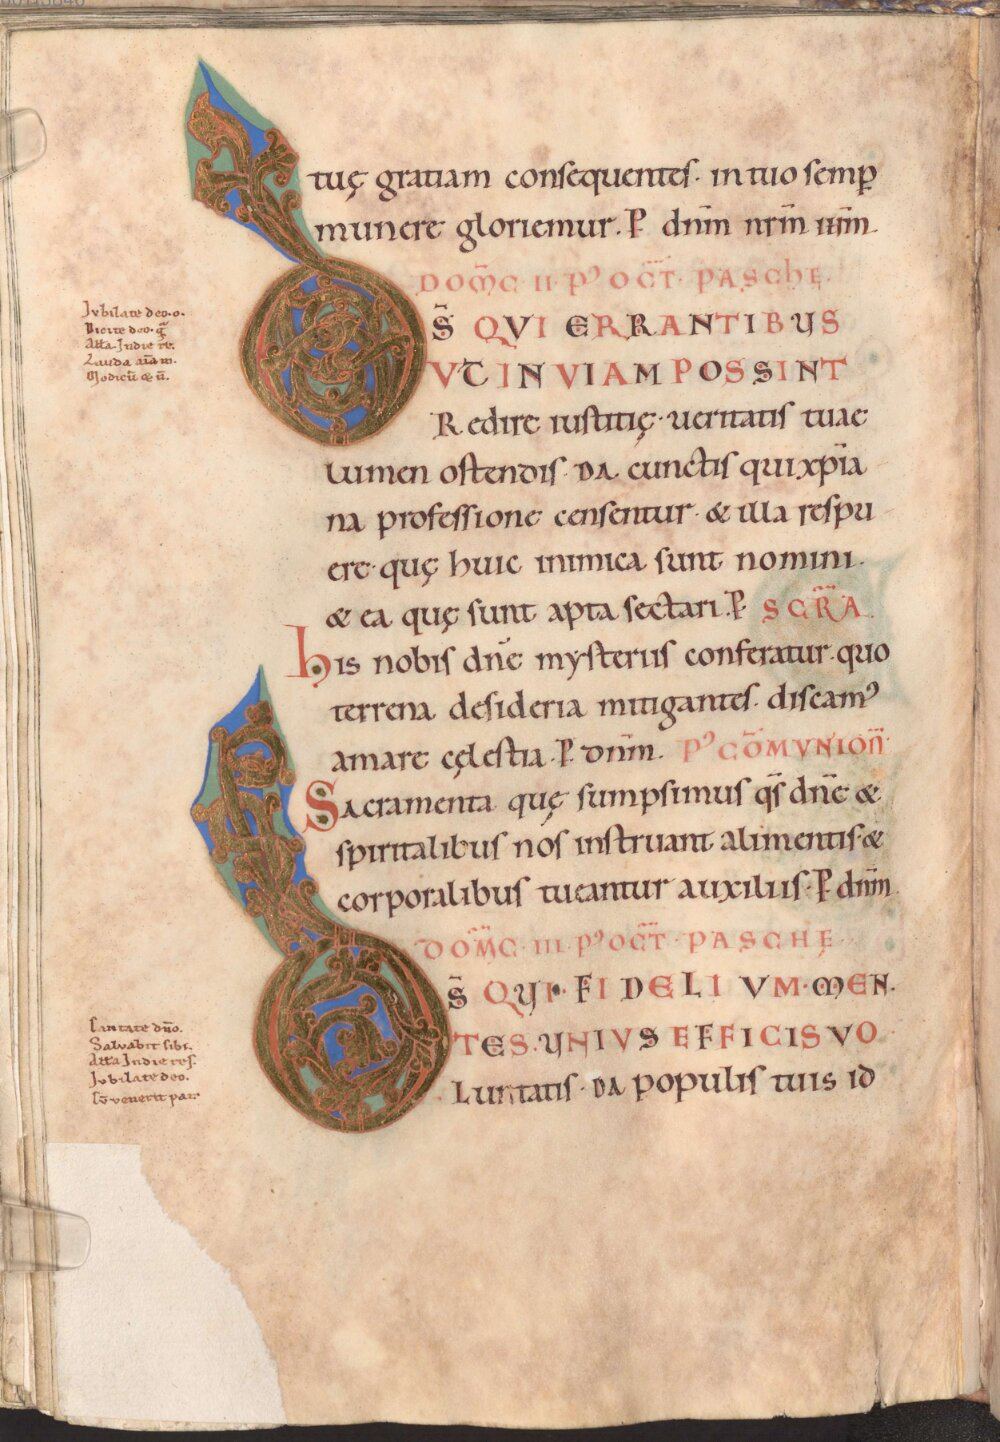 tuę gratiam consequentes· in tuo semp̄
munere gloriemur. P̄ dn̄m nr̄m ih̄m.
DOM̄C II P᾿ OCT̄ PASCHE.
D S̄ QVI ERRANTIBUS
VT IN VIAM POSSINT
Redire iustitię· ueritatis tuae
lumen ostendis· DA cunctis qui xp̄ia
na professione censentur· & illa respu
ere· quę huic inimica sunt nomini·
& ea quę sunt apta sectari. P̄ SECR̄A
his nobis dn̄e mysteriis conferatur· quo
terrena desideria mitigantes· discam᾿
amare cęlestia. P̄ dn̄m. P᾿ COM̄VNION̄
Sacramenta quę sumpsimus qs̄ dn̄e &
spiritalibus nos instruant alimentis· &
corporalibus tueantur auxiliis· P̄ dn̄m.
DOM̄C· III P᾿ OCT̄· PASCHE·
D S̄ QUI· FIDELIVM· MEN
TES· UNIVS EFFICIS VO
Luntatis· DA populis tuis id
Jubilate deo· o·
Dicite deo· q̄
Aƚƚa Indie re.
Lauda aīa m.
Modicū & ū.
Cantate dn̄o.
Salvabit sibi.
Aƚƚa Indie res.
Jubilate deo.
Cū venerit par